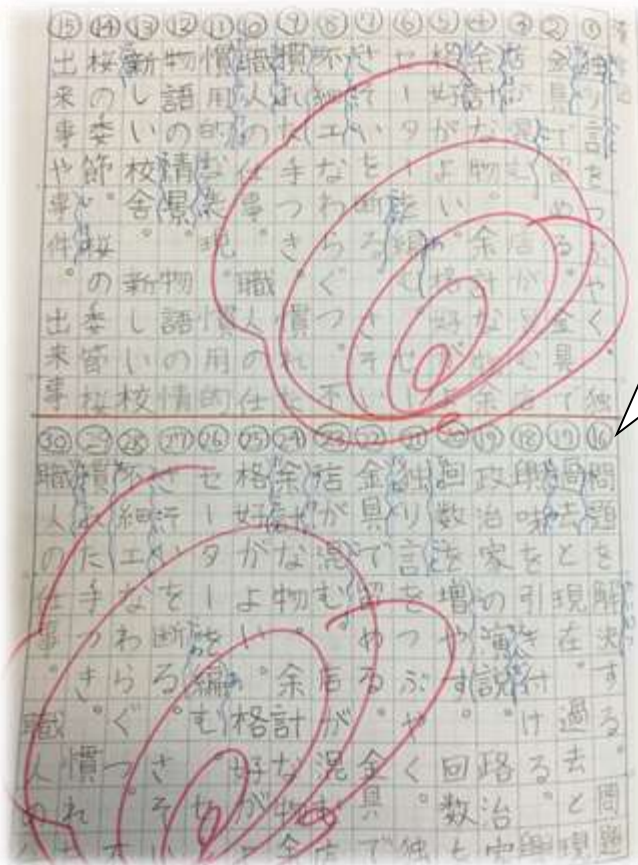 ①独り言をつぶやく。独
②金具で留める。金具で
③店が混む。店が
④余計な物。余計な物余
⑤格好がよい。格好がよ
⑥セーターを編む。セー
⑦さそいを断る。さそい
⑧不細工なわらぐつ。不
⑨慣れた手つき。慣れ
⑩職人の仕事。職人の仕
⑪慣用的な表現。慣用的
⑫物語の情景。物語の情
⑬新しい校舎。新しい校
⑭桜の季節。桜の季節桜
⑮出来事や事件。出来事
⑯問題を解決する。問題
⑰過去と現在。過去と現
⑱興味を引き付ける。興
⑲政治家の演説。政治家
⑳回数を増やす。回数を
㉑独り言をつぶやく。独
㉒金具で留める。金具で
㉓店が混む。店が混む
㉔余計な物。余計な物余
㉕格好がよい。格好が
㉖セーターを編む。セ
㉗さそいを断る。さそい
㉘不細工なわらぐつ。不
㉙慣れた手つき。慣れ
㉚職人の仕事。職人の